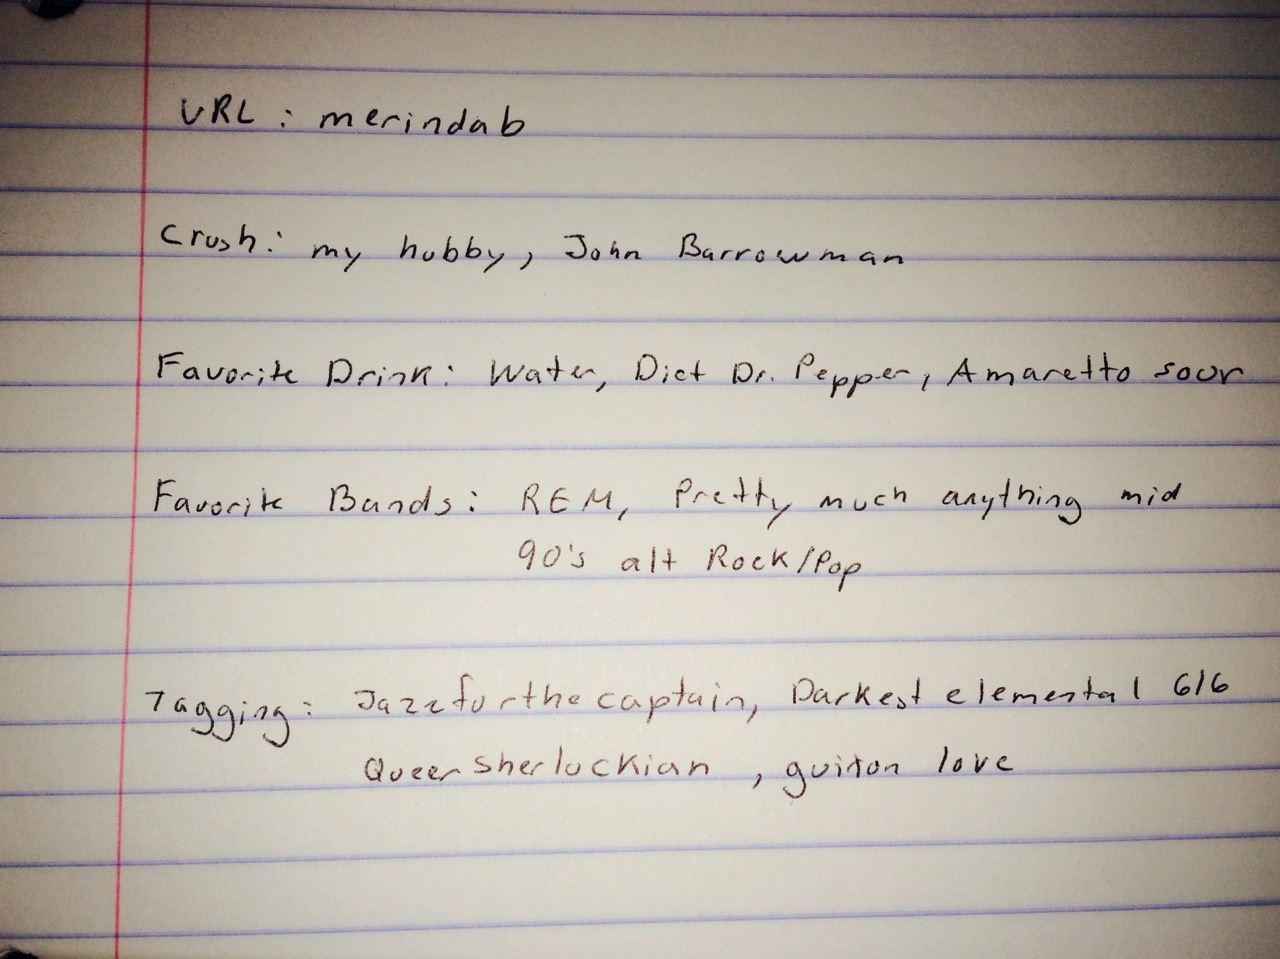 URL: merindab
Crush: my hubby, John Barrowman
Favorite Drink: Water, Diet Dr. Pepper, Amaretto sour
Favorite Bands: REM, Pretty much anything mid
90's alt Rock/Pop
Tagging: Jazzforthecaptain, Darkest elemental 616
Queersherlockian, guiton love